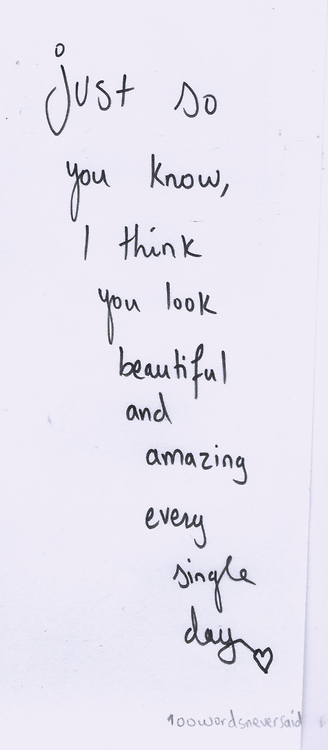 just so
you know,
I think
you look
beautiful
and
amazing
every
single
day
100wordsneversaid